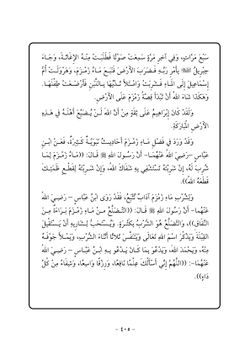 سَبْعَ مَرَّاتٍ، وَفِي آخِرِ مَرَّةٍ سَمِعَتْ صَوْتًا فَطَلَبَتْ مِنْهُ الإِغَاثَةَ، وَجَاءَ
جِبْرِيلُ بِأَمْرِ رَبِّهِ فَضَرَبَ الأَرْضَ فَنَبَعَ مَاءُ زَمْزَمَ، وَهَرْوَلَتْ أُمُّ
إِسْمَاعِيلَ إِلَى المَاءِ فَشَرِبَتْ وَامْتَلَأَ ثَدْيُهَا بِاللَّبَنِ فَأَرْضَعَتْ طِفْلَهَا.
وَهَكَذَا شَاءَ اللهُ أَنْ تَبْدَأَ قِصَّةُ زَمْزَمَ عَلَى الأَرْضِ.
وَلَقَدْ كَانَ إِبْرَاهِيمُ عَلَى ثِقَةٍ مِنْ أَنَّ اللهَ لَنْ يُضَيِّعَ أَهْلَهُ فِي هَذِهِ
الأَرْضِ المُبَارَكَةِ.
وَقَدْ وَرَدَ فِي فَضْلِ مَاءِ زَمْزَمَ أَحَادِيثُ نَبَوِيَّةٌ كَثِيرَةٌ، فَعَنِ ابْنِ
عَبَّاسٍ –رَضِيَ اللهُ عَنْهُمَا– أَنَّ رَسُولَ اللهِ ﷺ قَالَ: ((مَاءُ زَمْزَمَ لِمَا
شُرِبَ لَهُ، إِنْ شَرِبْتَهُ تَسْتَشْفِي بِهِ شَفَاكَ اللهُ، وَإِنْ شَرِبْتَهُ لِقَطْعِ ظَمَئِكَ
قَطَعَهُ اللهُ)).
وَلِشُرْبِ مَاءِ زَمْزَمَ آدَابٌ تُتَّبَعُ، فَقَدْ رَوَى ابْنُ عَبَّاسٍ – رَضِيَ اللهُ
عَنْهُمَا– أَنَّ رَسُولَ اللهِ ﷺ قَالَ: ((التَّضَلُّعُ مِنْ مَاءِ زَمْزَمَ بَرَاءَةٌ مِنَ
النِّفَاقِ))، وَالتَّضَلُّعُ هُوَ الشُّرْبُ بِكَثْرَةٍ. وَيُسْتَحَبُّ لِشَارِبِهِ أَنْ يَسْتَقْبِلَ
القِبْلَةَ وَيَذْكُرَ اسْمَ اللهِ تَعَالَى وَيَتَنَفَّسَ ثَلَاثًا أَثْنَاءَ الشُّرْبِ، وَيَمْلَأَ جَوْفَهُ
مِنْهُ، وَيَحْمَدَ اللهَ، وَيَدْعُوَ بِمَا كَانَ يَدْعُو بِهِ ابْنُ عَبَّاسٍ – رَضِيَ اللهُ
عَنْهُمَا–: ((اللَّهُمَّ إِنِّي أَسْأَلُكَ عِلْمًا نَافِعًا، وَرِزْقًا وَاسِعًا، وَشِفَاءً مِنْ كُلِّ
دَاءٍ)).